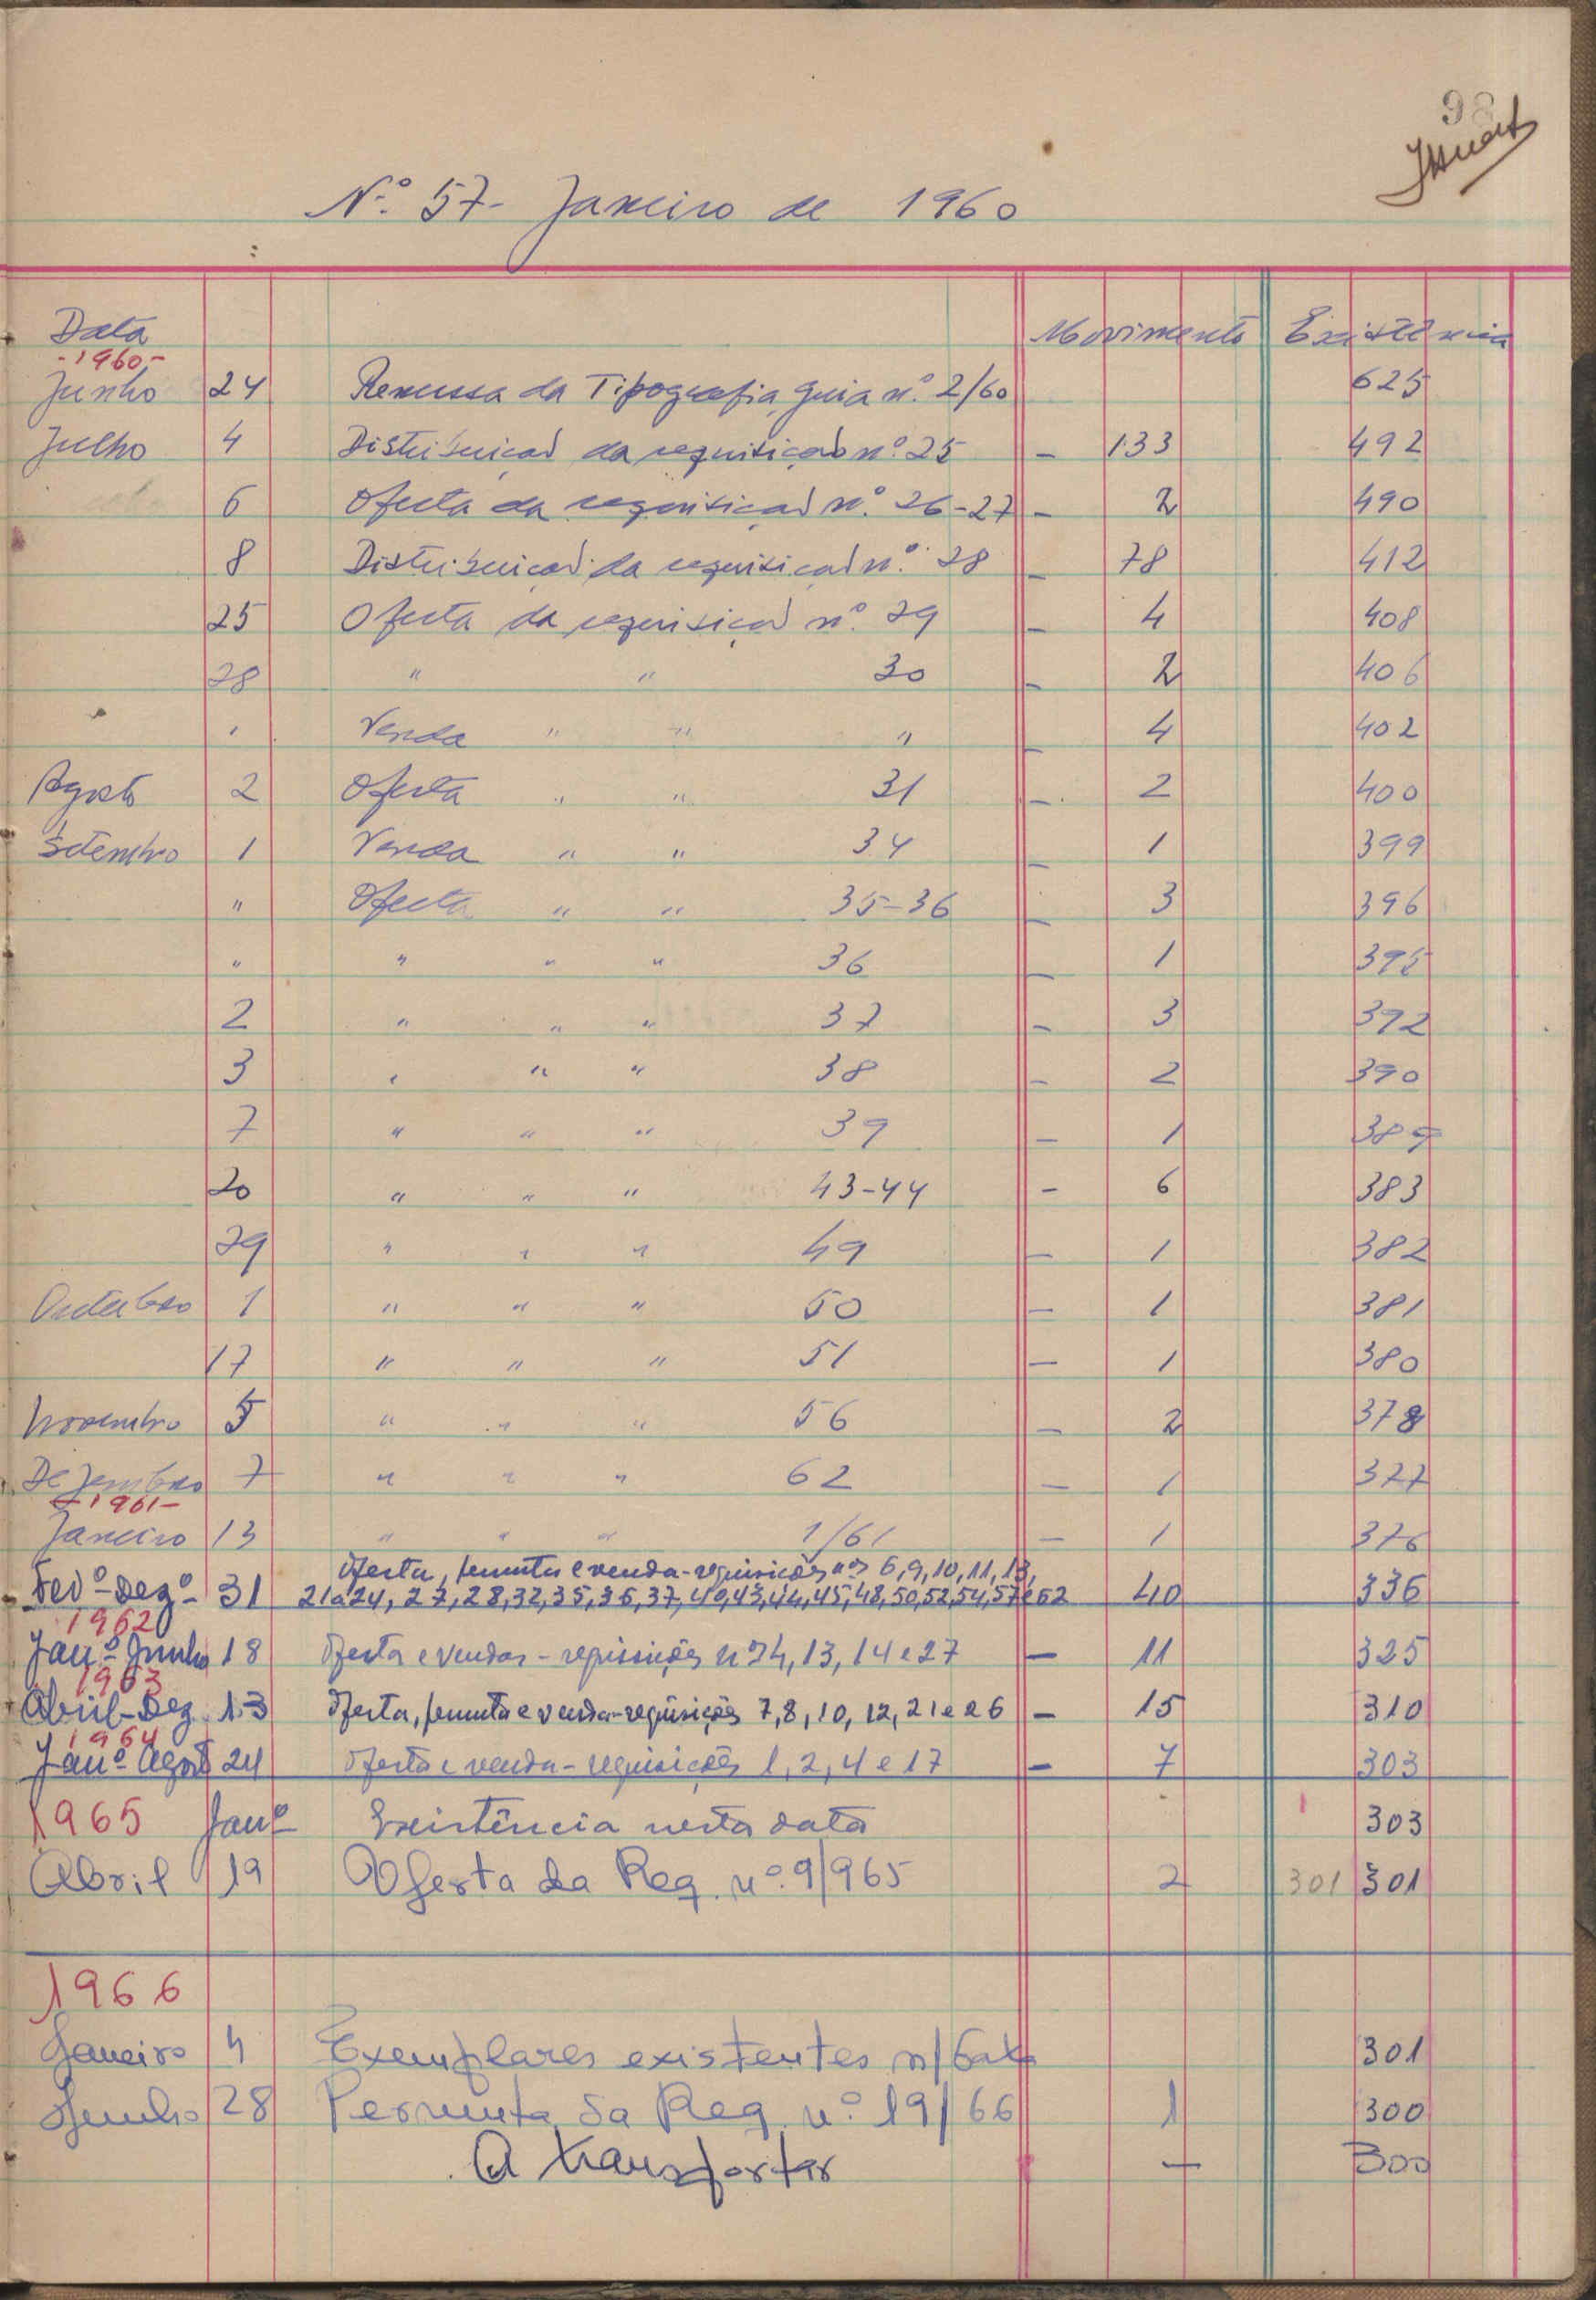 98
Nº 57 - Janeiro de 1960
Data Movimento Existência
-1960-
Junho 24 Remessa da Tipografia, guia nº 2/60 625
Julho 4 Distribuição da requisição nº 25 - 133 492
6 Oferta da requisição nº 26-27 - 2 490
8 Distribuição da requisição nº 28 - 78 412
25 Oferta da requisição nº 29 - 4 408
28 " " 30 - 2 406
' Venda " " " - 4 402
Agosto 2 Oferta " " 31 - 2 400
Setembro 1 Venda " " 34 - 1 399
" Oferta " " 35-36 - 3 396
" " " " 36 - 1 395
2 " " " 37 - 3 392
3 " " " 38 - 2 390
7 " " " 39 - 1 389
20 " " " 43-44 - 6 383
29 " " " 49 - 1 382
Outubro 1 " " " 50 - 1 381
17 " " " 51 - 1 380
Novembro 5 " " " 56 - 2 378
Dezembro 7 " " " 62 - 1 377
-1961-
Janeiro 13 " " " 1/61 - 1 376
Oferta, permuta e venda - requisições nºs 6, 9, 10, 11, 13,
Fevº - Dezº - 31 21 a 24, 27, 28, 32, 35, 36, 37, 40, 43, 44, 45, 48, 50, 52, 54, 57 e 62 40 336
1962
Janº - Junho 18 Oferta e vendas - requisições nºs 4, 13, 14 e 27 - 11 325
1963
Abril - Dez. 13 Oferta, permuta e venda - requisições 7, 8, 10, 12, 21 e 26 - 15 310
1964
Janº Agostº 24 Oferta e venda - requisições 1, 2, 4 e 17 - 7 303
1965 Janº Existência nesta data 303
Abril 19 Oferta da Req. nº 9/965 2 301 301
1966
Janeiro 4 Exemplares existentes n/ 301
Junho 28 Permuta da Req. nº 19/66 1 300
A transportar - 300